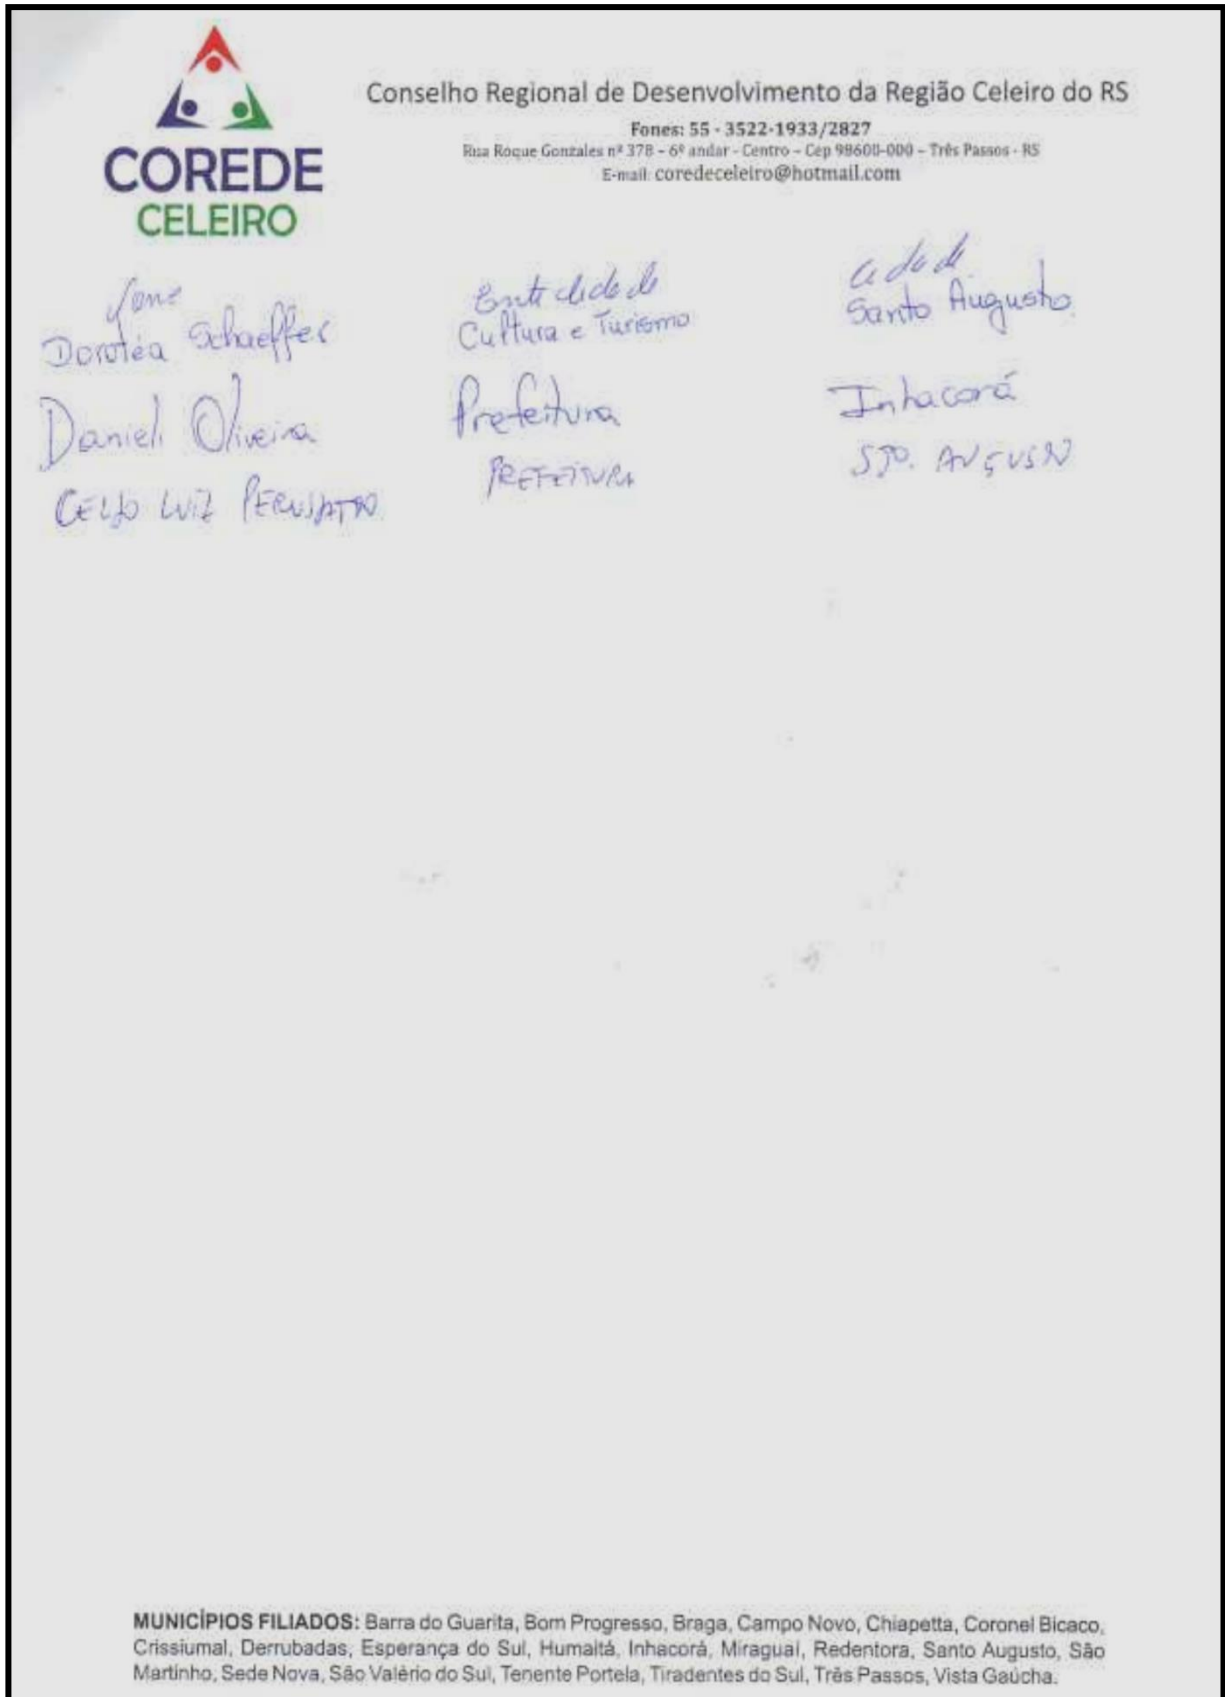 COREDE
CELEIRO
Conselho Regional de Desenvolvimento da Região Celeiro do RS
Fones: 55 - 3522-1933/2827
Rua Roque Gonzales nº 378 – 6º andar - Centro – Cep 98600-000 – Três Passos - RS
E-mail: coredeceleiro@hotmail.com
Nome Entidade Cidade
Dorotéa Schaeffer Cultura e Turismo Santo Augusto
Danieli Oliveira Prefeitura Inhacorá
CELSO LUIZ PREFEITURA STO. AUGUSTO
MUNICÍPIOS FILIADOS: Barra do Guarita, Bom Progresso, Braga, Campo Novo, Chiapetta, Coronel Bicaco,
Crissiumal, Derrubadas, Esperança do Sul, Humaitá, Inhacorá, Miraguai, Redentora, Santo Augusto, São
Martinho, Sede Nova, São Valério do Sul, Tenente Portela, Tiradentes do Sul, Três Passos, Vista Gaúcha.